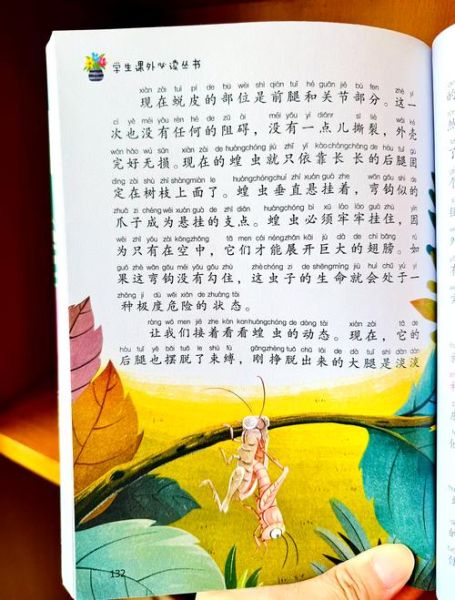 学生课外必读丛书
xiàn zài tuì pí de bù wèi shì qián tuǐ hé guān jié bù fen zhè yí
现在蜕皮的部位是前腿和关节部分。这一
cì yě méi yǒu rèn hé de zǔ ài méi yǒu yì diǎnr sī liè wài ké
次也没有任何的阻碍，没有一点儿撕裂，外壳
wán hǎo wú sǔn xiàn zài de huángchóng jiù zhǐ yī kào chángcháng de hòu tuǐ gù
完好无损。现在的蝗虫就只依靠长长的后腿固
dìng zài shù zhī shàngmiàn le huángchóngchuí zhí xuán guà zhe wān gōu shì de
定在树枝上面了。蝗虫垂直悬挂着，弯钩似的
zhuǎ zi chéng wéi xuán guà de zhī diǎn huángchóng bì xū láo láo guà zhù yīn
爪子成为悬挂的支点。蝗虫必须牢牢挂住，因
wèi zhǐ yǒu zài kōngzhōng tā men cái néngzhǎn kāi jù dà de chì bǎng rú
为只有在空中，它们才能展开巨大的翅膀。如
guǒ zhè wān gōu méi yǒu gōu zhù zhè chóng zi de shēngmìng jiù huì chǔ yú yì
果这弯钩没有勾住，这虫子的生命就会处于一
zhǒng jí dù wēi xiǎn de zhuàng tài
种极度危险的状态。
ràng wǒ men jiē zhe kàn kanhuángchóng de dòng tài xiàn zài tā de
让我们接着看看蝗虫的动态。现在，它的
hòu tuǐ yě bǎi tuō le shù fù gāngzhèng tuō chū lái de dà tuǐ shì dàn dàn
后腿也摆脱了束缚，刚挣脱出来的大腿是淡淡
132